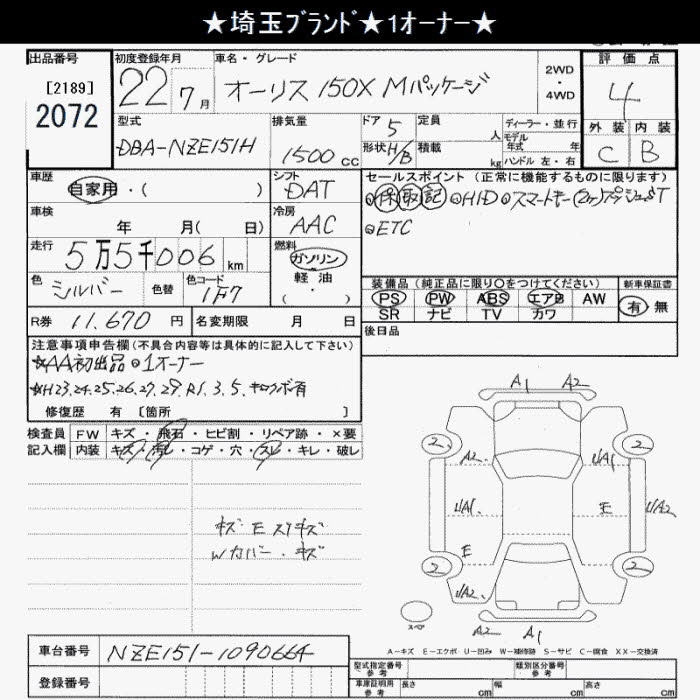 ★埼玉ﾌﾞﾗﾝﾄﾞ★1オーナー★
出品番号 初度登録年月 車名・グレード 評価点
[2189] 22 7月 オーリス 150X Mパッケージ 2WD・4WD 4
2072
型式 排気量 ドア 5 定員 人 ディーラー・並行 外装 内装
DBA-NZE151H 1500cc 形状 H/B 積載 kg モデル年式 年 C B
ハンドル 左・右
車歴 シフト セールスポイント (正常に機能するものに限ります)
自家用・( ) DAT ◎保取記 ◎HID ◎スマートキー(2ヶ)
車検 冷房 ◎ETC
年 月( 日) AAC
走行 燃料
5万5千006km ガソリン
軽油
・( )
色 色替 色コード 装備品 (純正品に限り○をつけてください) 新車保証書
シルバー 1F7 PS PW ABS エアB AW 有 無
SR ナビ TV カワ
R券 11,670円 名変期限 月 日 後日品
注意事項申告欄(不具合内容等は具体的に記入して下さい)
★AA初出品 ◎1オーナー
★H23.24.25.26.27.29.R1.3.5.キロクボ有
修復歴 有 [箇所 ]
検査員 FW キズ・飛石・ヒビ割・リペア跡・×要
記入欄 内装 キズ・汚レ・コゲ・穴・スレ・キレ・破レ
キズ・E スリキズ
Wカバー・キズ
A1 A2
2 2
A2 U/A1
U/A1 E U/A2
E
2 2
U/A2 U/A2
スペア
A2 A1
A－キズ E－エクボ U－凹み W－補修跡 S－サビ C－腐食 XX－交換済
車台番号 NZE151-1090664
登録番号
型式指定番号 参考 類別区分番号 参考
車庫証明用 参考 長さ cm 幅 cm 高さ cm